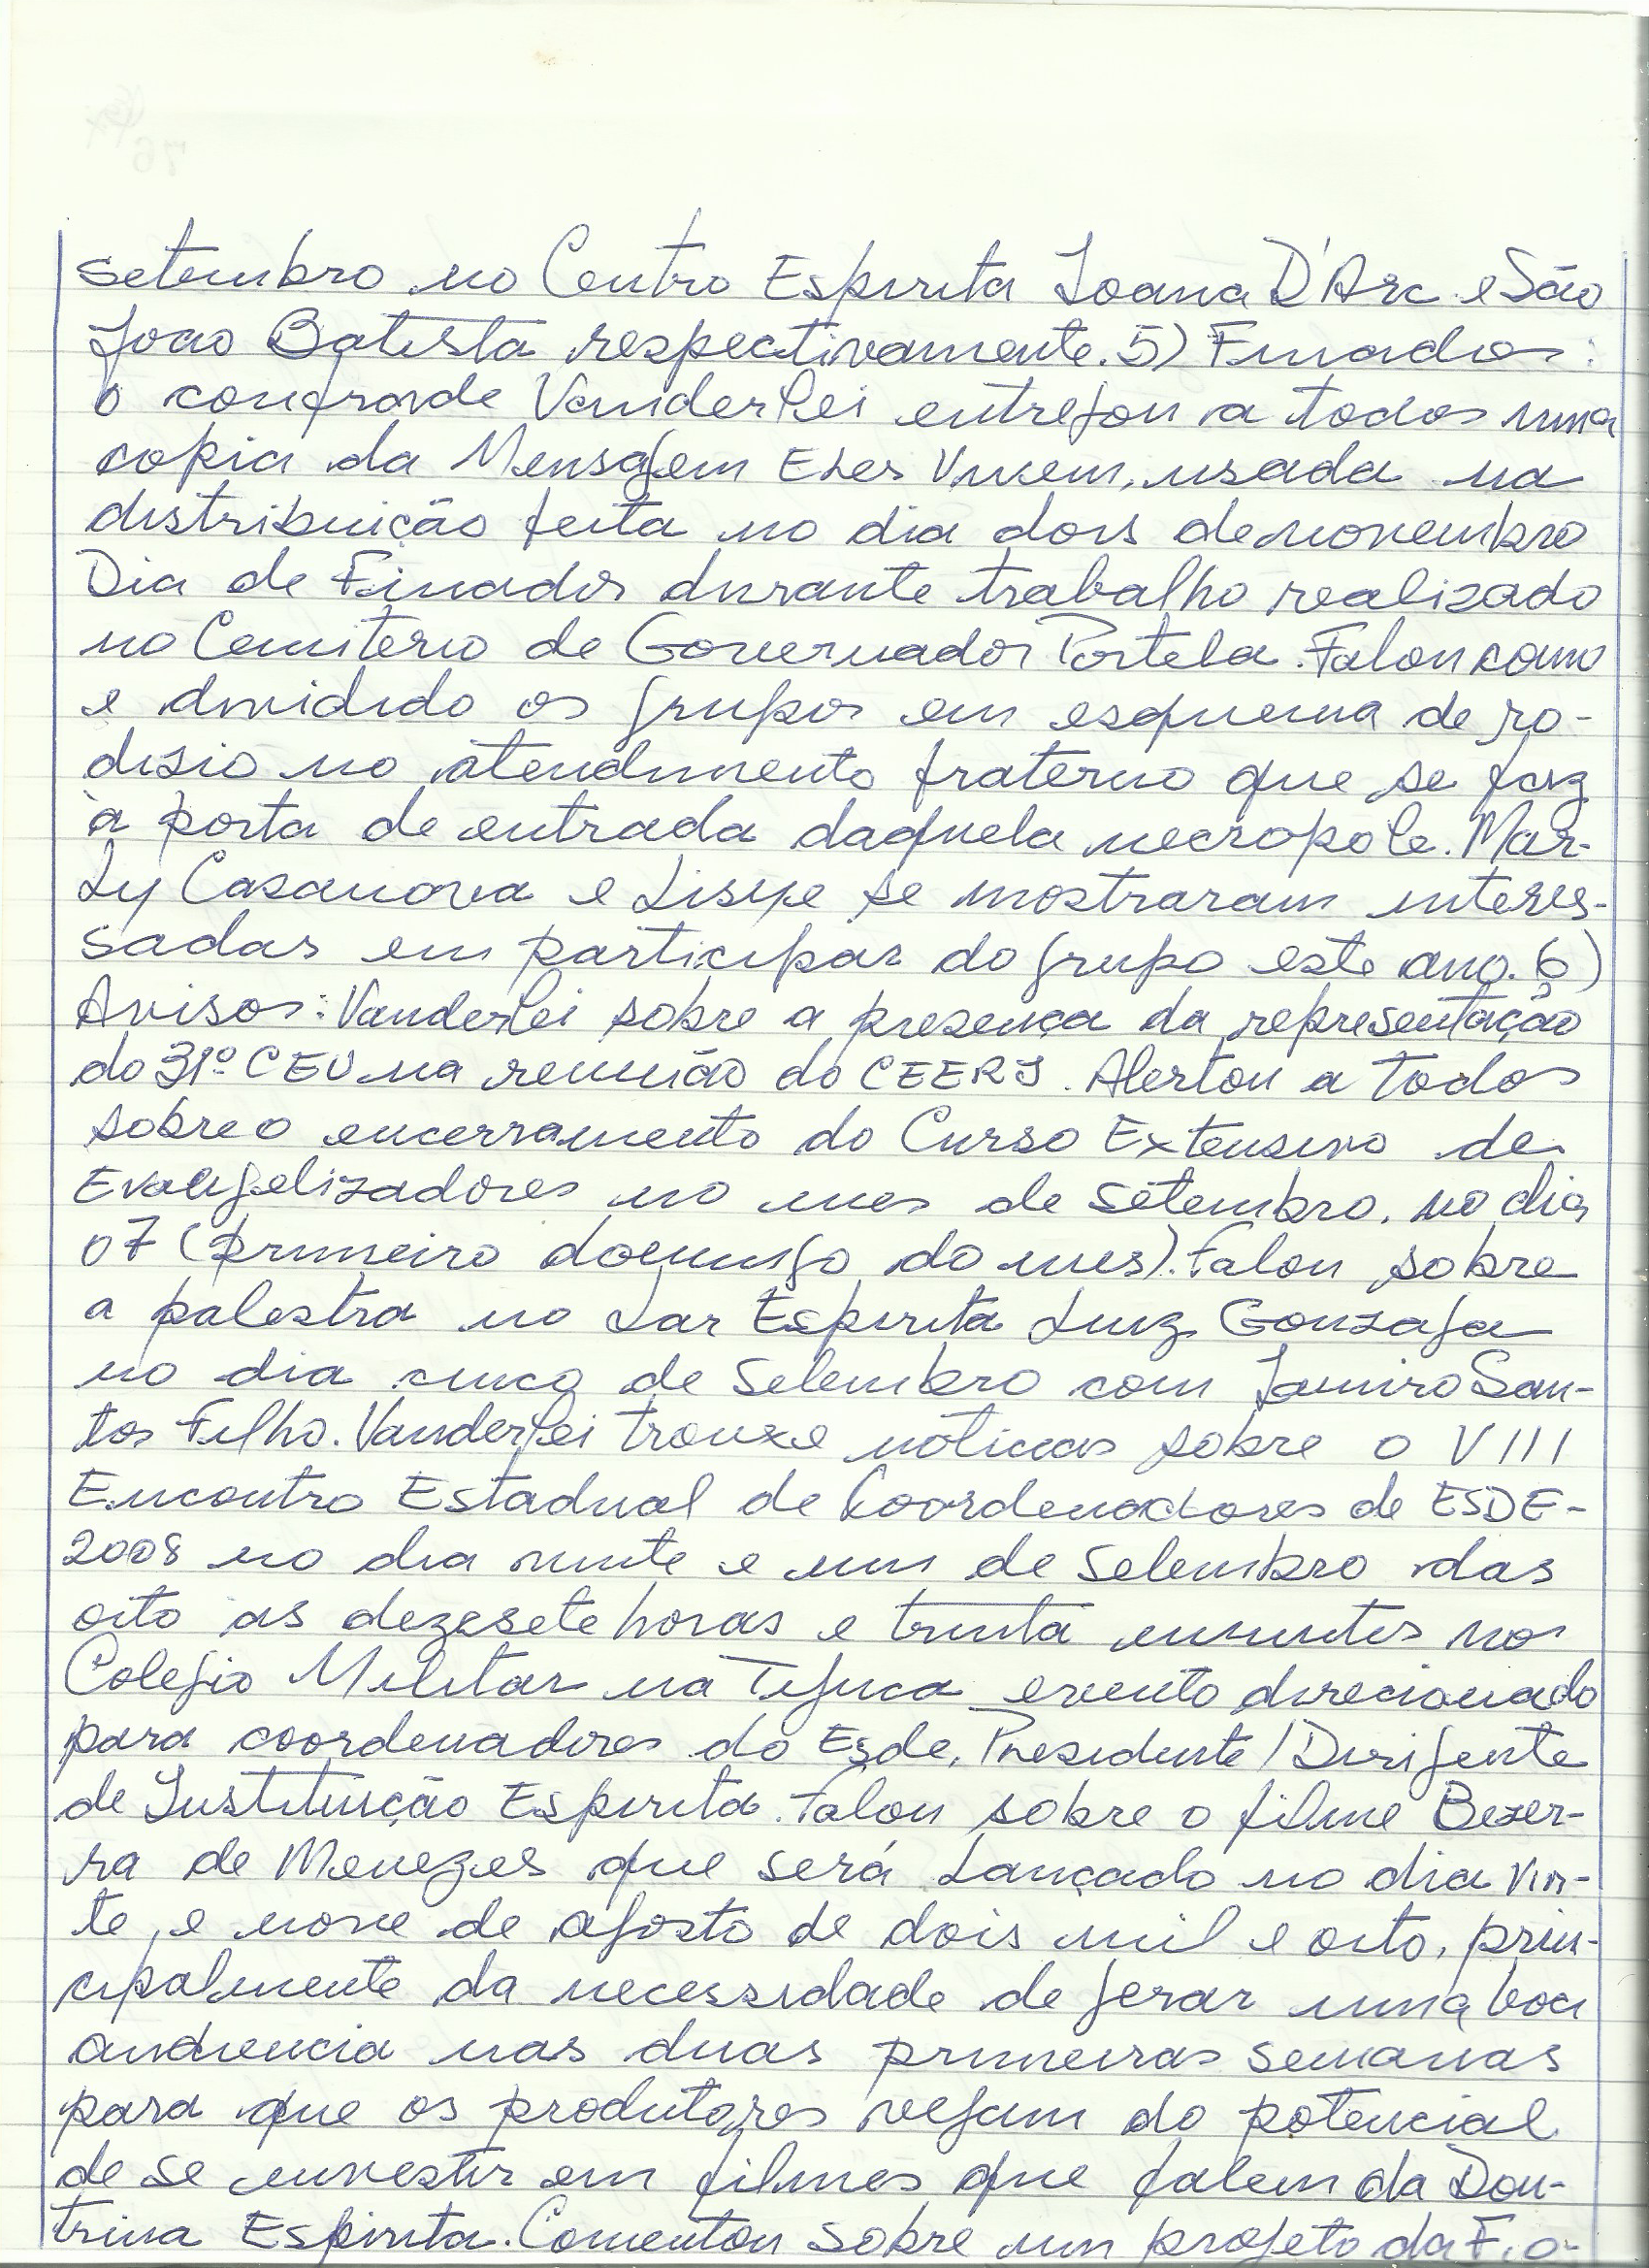 setembro no Centro Espirita Joana D'Arc e São
João Batista respectivamente. 5) Finados:
o confrade Vanderlei entregou a todos uma
copia da Mensagem Eles Vivem, usada na
distribuição feita no dia dois de novembro
Dia de Finados durante trabalho realizado
no Cemiterio de Governador Portela. Falou como
e dividido os grupos em esquema de ro-
disio no atendimento fraterno que se faz
à porta de entrada daquela necropole. Mar-
ly Casanova e Lisye se mostraram interes-
sadas em participar do grupo este ano. 6)
Avisos: Vanderlei sobre a presença da representação
do 31º CEU na reunião do CEERJ. Alertou a todos
sobre o encerramento do Curso Extensivo de
Evangelizadores no mes de setembro, no dia
07 (primeiro domingo do mes). Falou sobre
a palestra no Lar Espirita Luiz Gonzaga
no dia cinco de Setembro com Jamiro San-
tos Filho. Vanderlei trouxe noticias sobre o VIII
Encontro Estadual de Coordenadores de ESDE-
2008 no dia vinte e um de Setembro das
oito as dezesete horas e trinta minutos no
Colegio Militar na Tijuca evento direcionado
para coordenadores do Esde, Presidente/Dirigente
de Instituição Espirita. Falou sobre o filme Bezer-
ra de Menezes que será Lançado no dia vin-
te, e nove de agosto de dois mil e oito, prin-
cipalmente da necessidade de gerar uma boa
audiencia nas duas primeiras semanas
para que os produtores vejam do potencial
de se investir em filmes que falem da Dou-
trina Espirita. Comentou sobre um projeto da
76